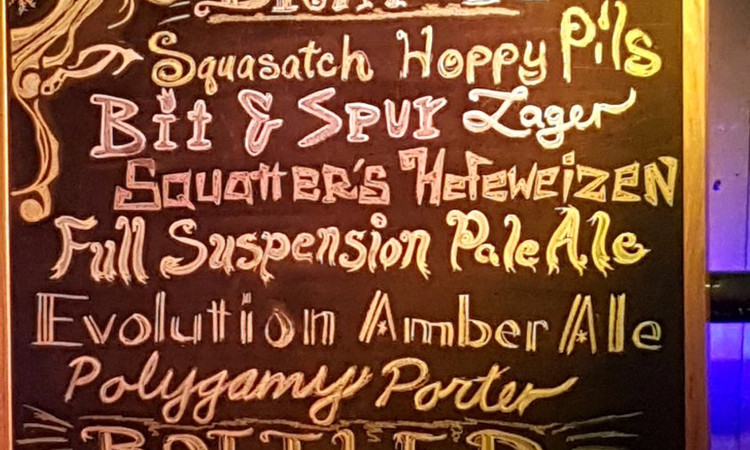 Squasatch Hoppy Pils
Bit & Spur Lager
Squatter's Hefeweizen
Full Suspension Pale Ale
Evolution Amber Ale
Polygamy Porter
BOTTLED